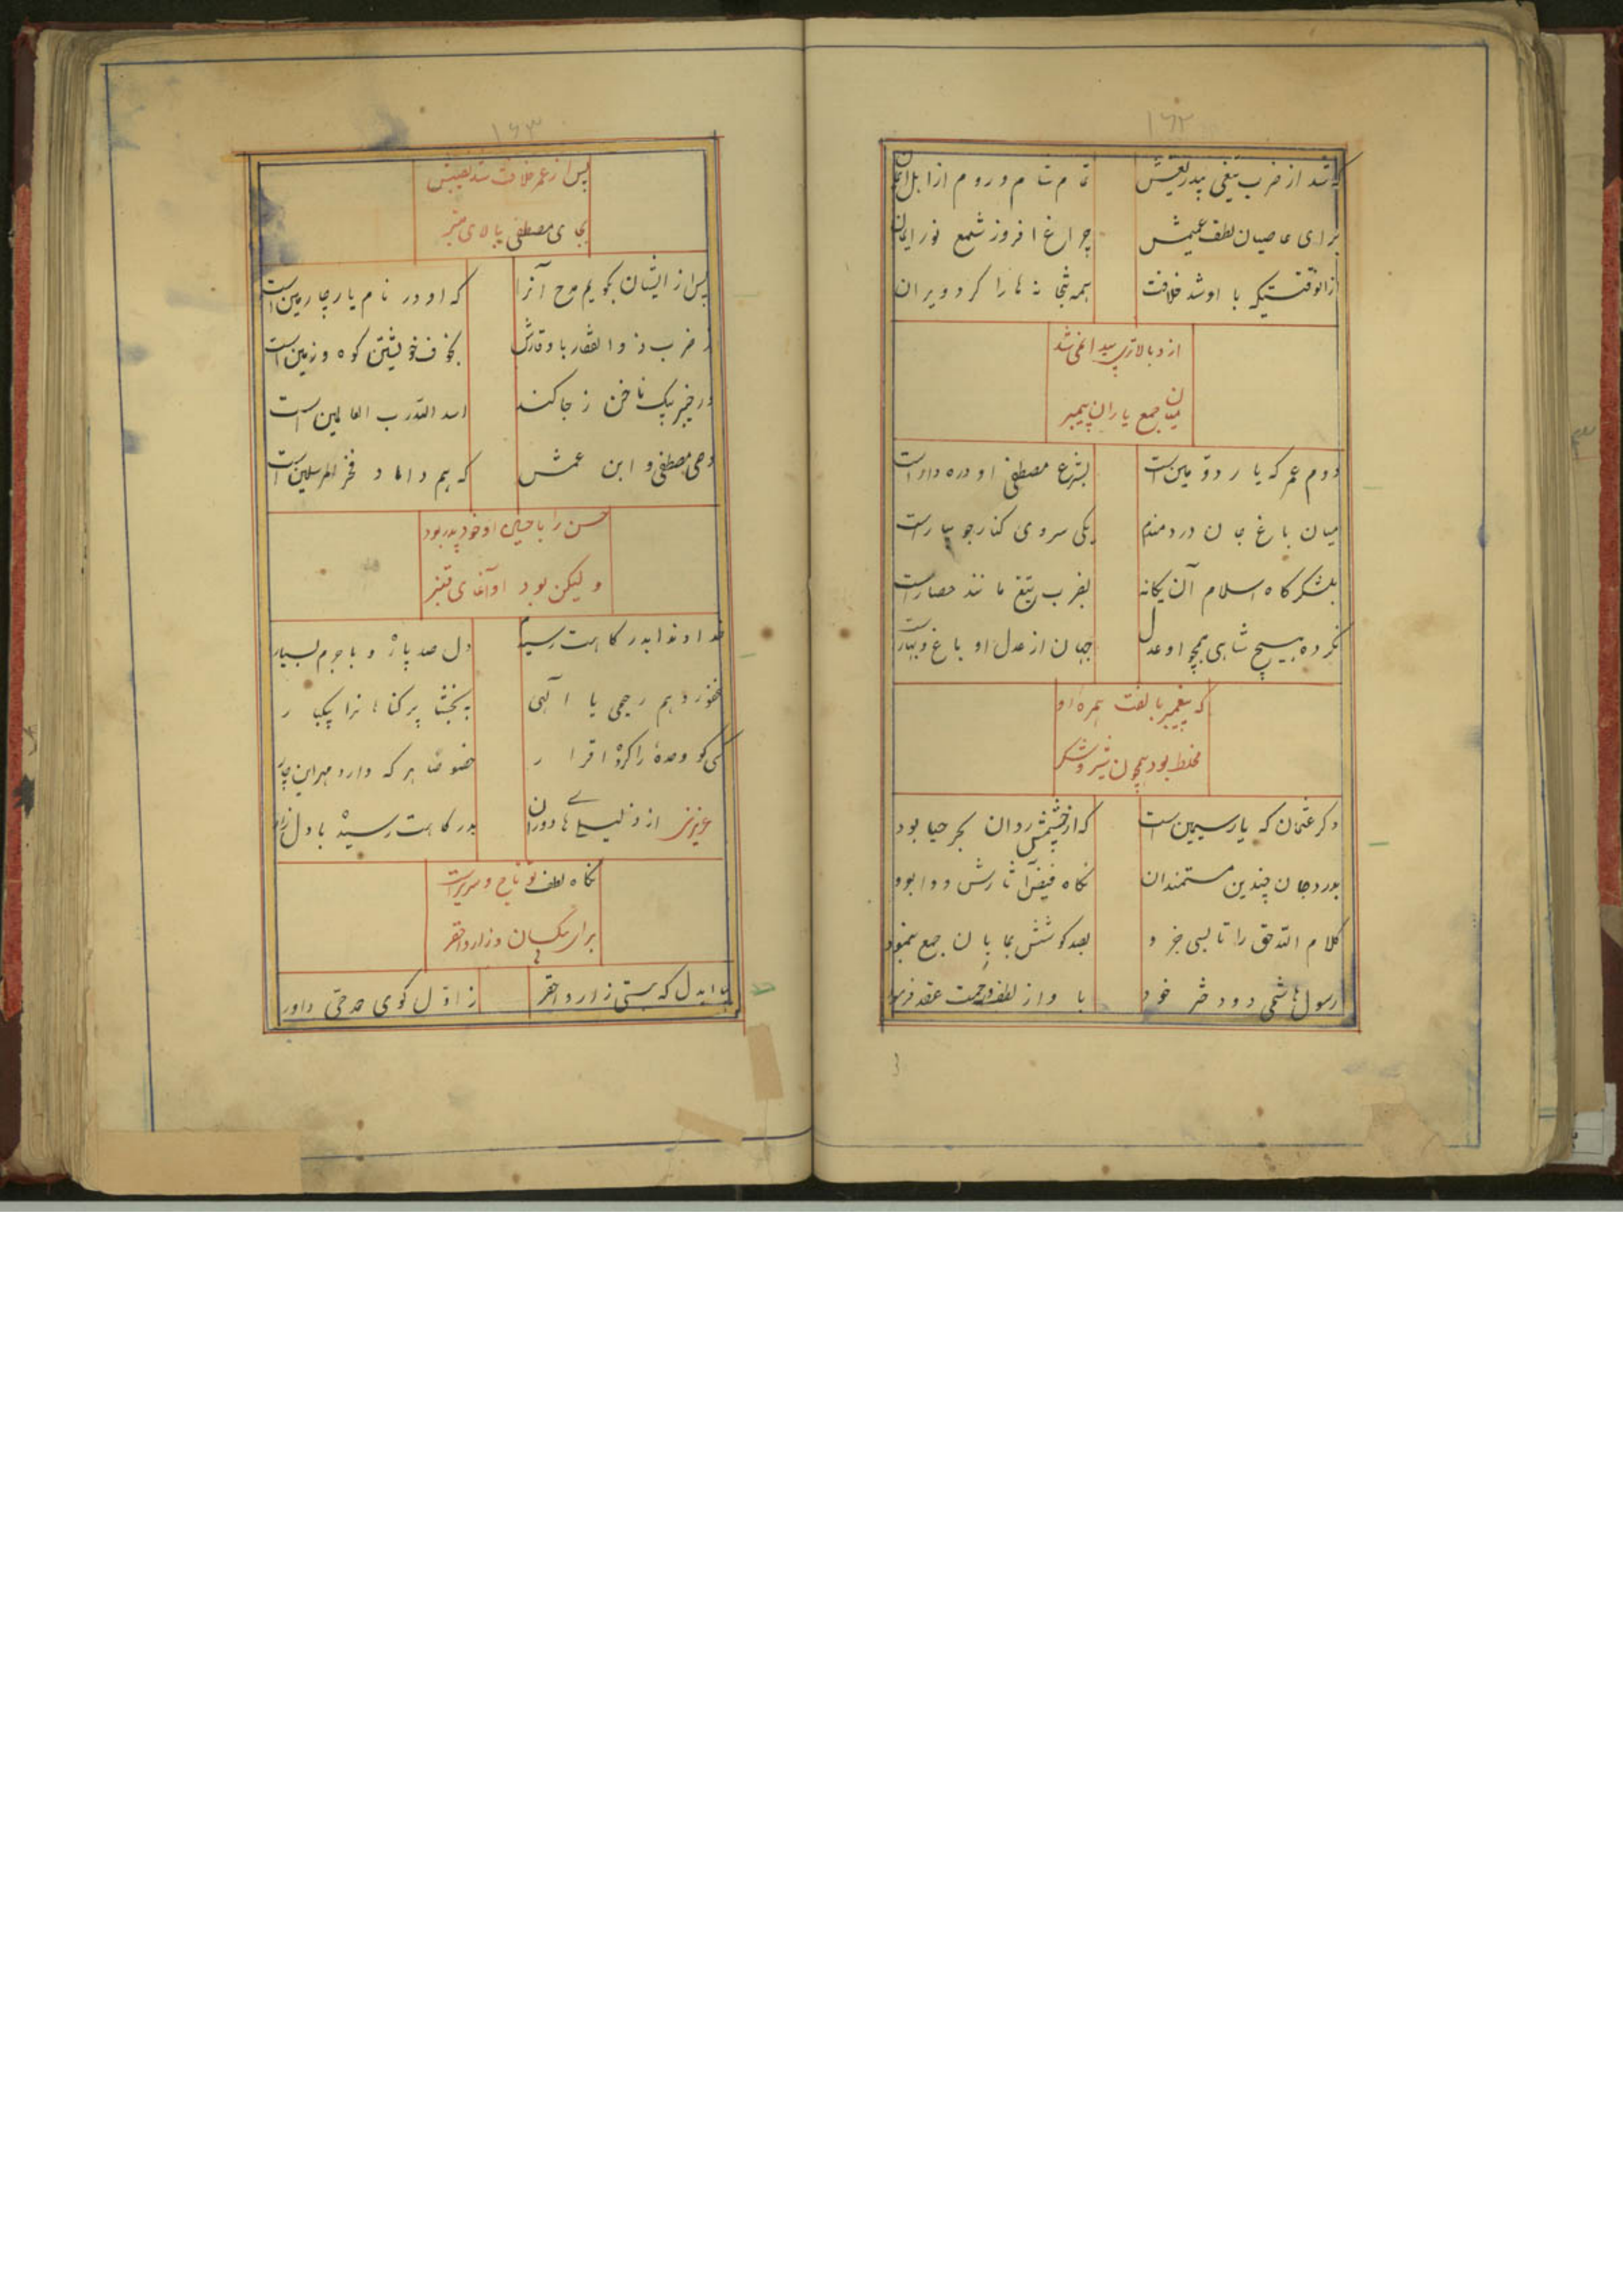 ۱۶۲
که شد از ضرب تیغی بیدریغش تمام شام و روم از اهل ایمان
برای عاصیان لطف عمیمش چراغ افروز شمع نور ایمان
ازانوقتیکه با او شد خلافت همه بتخانه ها را کرد ویران
از و بالاتری پیدا نمی شد
میان جمع یاران پیمبر
دوم عمر که یار دومین است بشرع مصطفی او دره دار است
میان باغ جان دردمندم یکی سروی کنار جویبار است
بلشکر کاه اسلام آن یکانه بضرب تیغ مانند حصار است
نکرده هیچ شاهی همچو او عدل جهان از عدل او باغ و بهار است
که پیغمبر بالفت همره او
مخلط بود همچون شیر و شکر
دکر عثمان که یار سیمین است که از چشمش روان بحر حیا بود
بدرد جان چندین مستمندان نکاه فیض آثارش دوا بود
کلام الله حق را تا بسی جزو بصد کوشش بپایان جمع بنمود
رسول هاشمی دو دختر خود با و از لطف و رحمت عقد فرمود
۱۶۳
پس از عمر خلافت شد نصیبش
بجای مصطفی بالای منبر
پس از ایشان بکویم مدح آنرا که او در نام یار چارمین است
ز ضرب ذوالفقار با وقارش بخوف خویشتن کوه و زمین است
در خیبر بیک ناخن ز جا کند اسد الله رب العالمین است
وصی مصطفی و ابن عمش که هم داماد فخر المرسلین است
حسن را با حسین او خود پدر بود
ولیکن بود او آغای قنبر
خداوندا بدرکاهت رسیدم دل صد پاره و با جرم بسیار
غفور و هم رحیمی یا الهی ببخشا پر کناهانرا بیکبار
کسی کو وحده را کرده اقرار خصوصا هر که دارد مهر این چار
عزیزی از ذلیلی های دوران بدرکاهت رسیده با دل زار
نکاه لطف تو تاج و سریر است
برای بیکسان و زار و احقر
بیا ایدل که هستی زار و احقر ز اول کوی مدحی داور